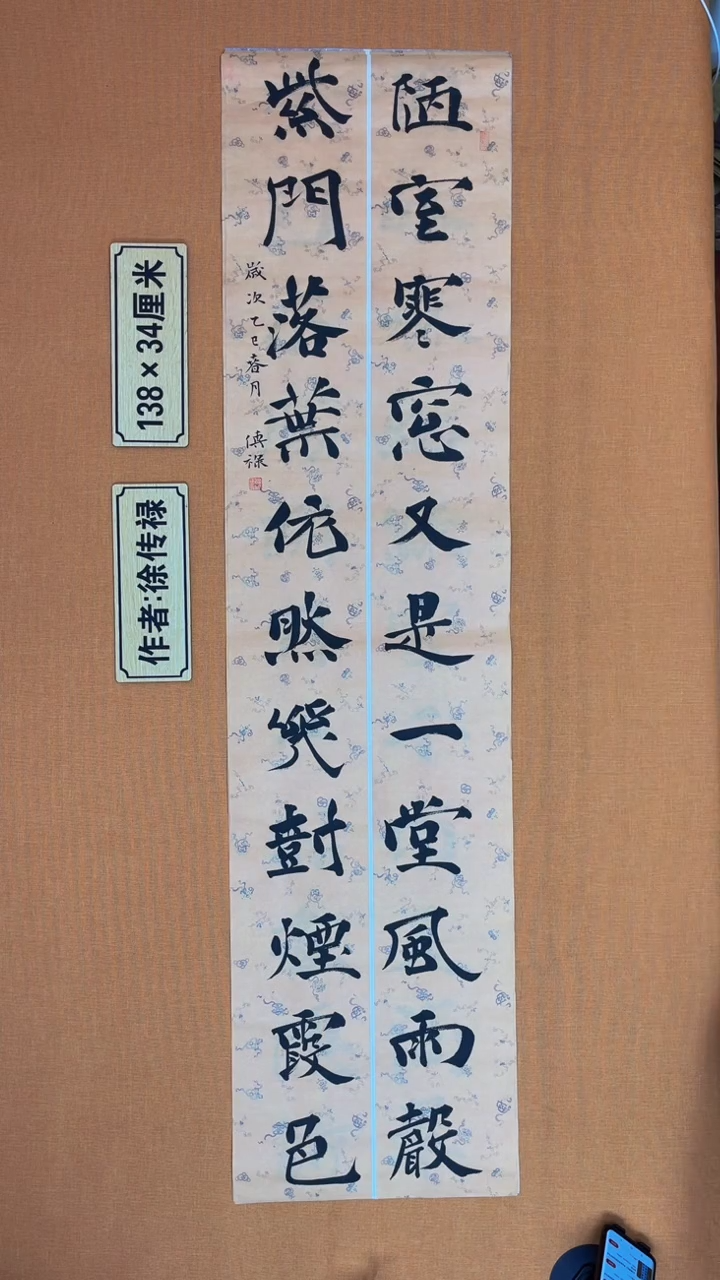 陋室寒窓又是一堂風雨聲
紫門落葉依然幾尌煙霞色
歲次乙巳春月 傳祿
138×34厘米
作者:徐传禄